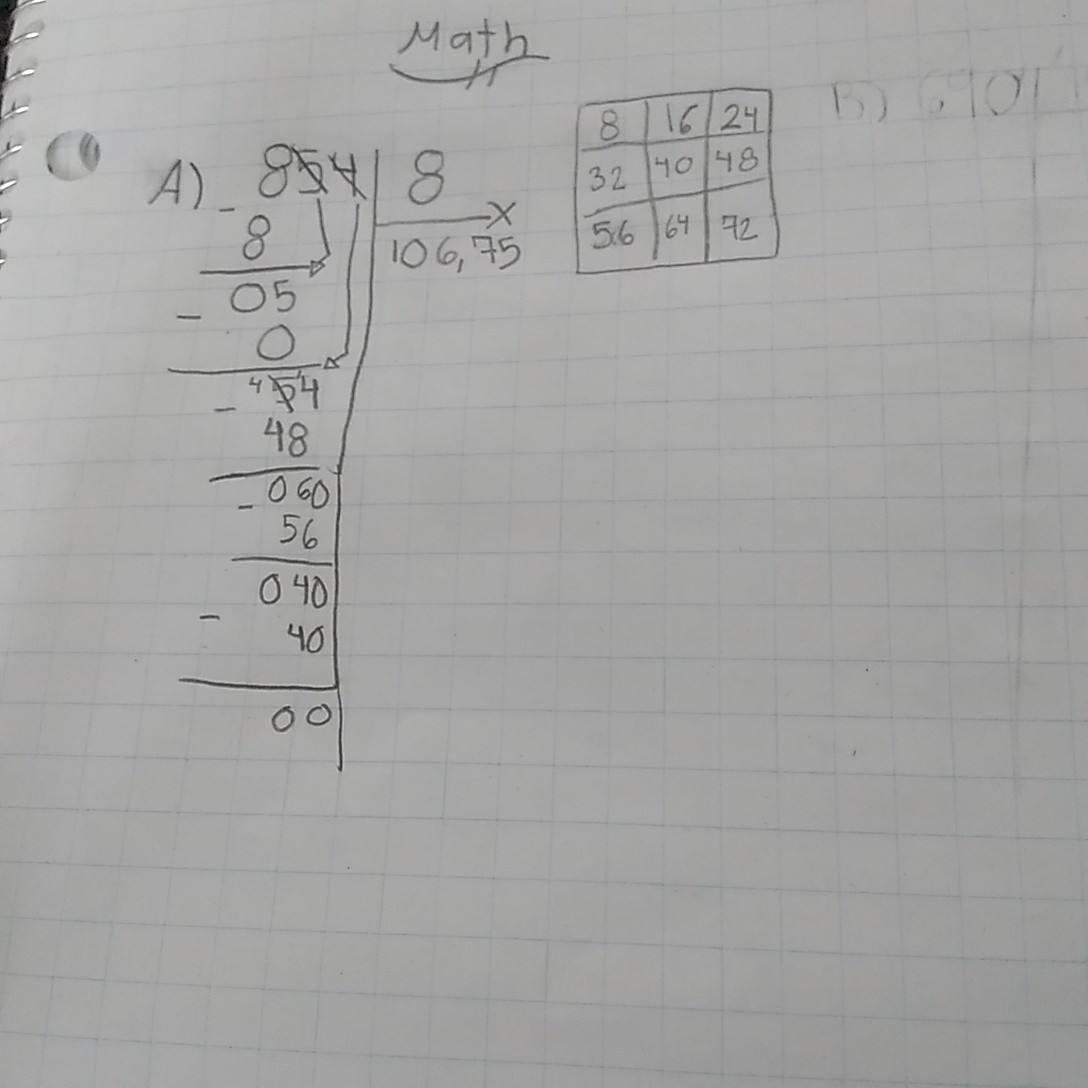 Math
A) - 854 | 8
8
x
106,75
- 05
0
- 4 54
48
- 060
56
040
- 40
00
8 16 24
32 40 48
56 64 72
B) 6901